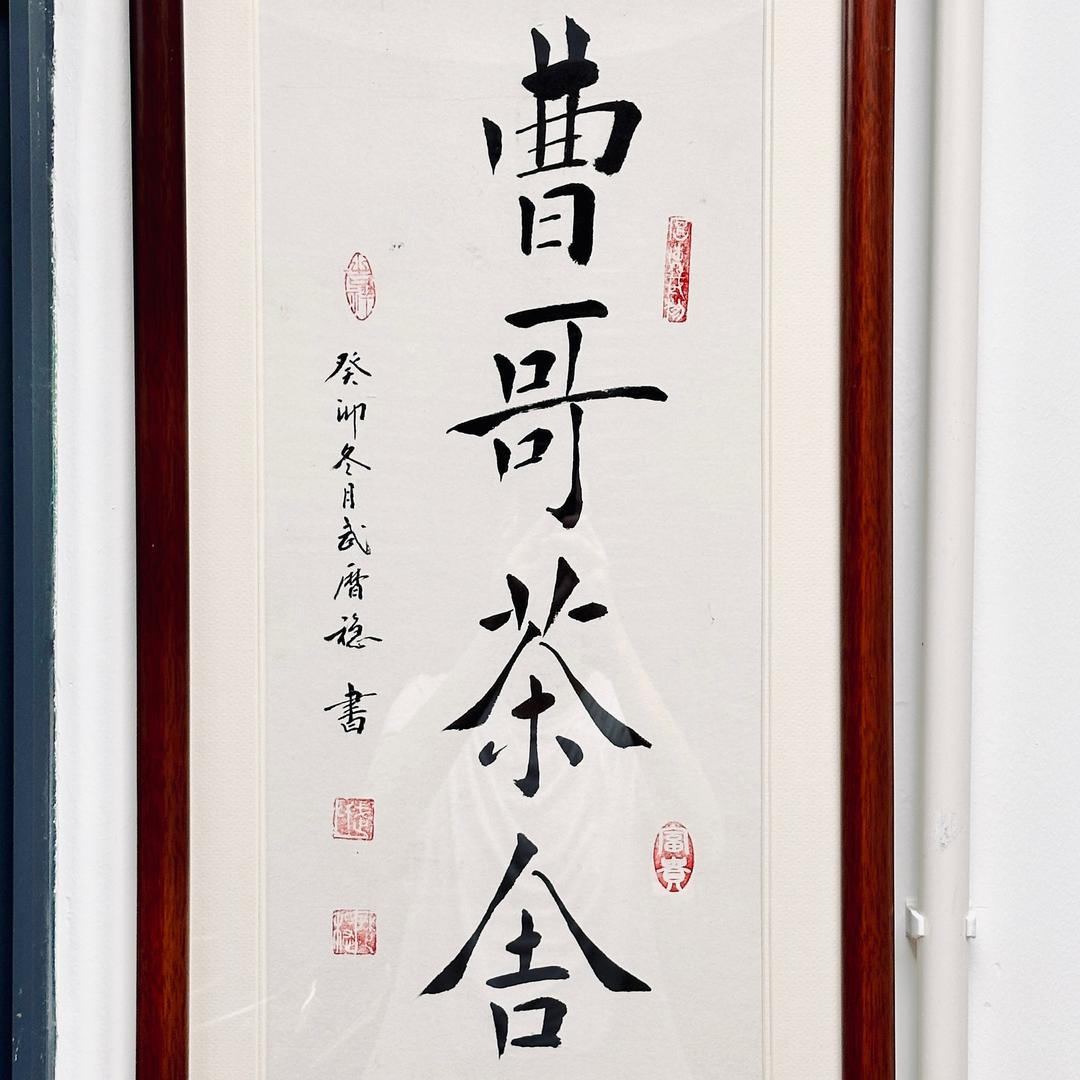 曹哥茶舍
癸卯冬月武曆稳書
富貴